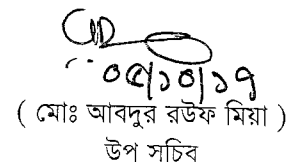 ০৫/১০/১৭
( মোঃ আবদুর রউফ মিয়া )
উপ সচিব